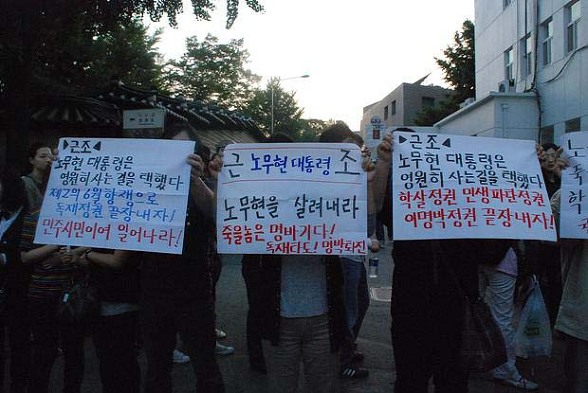 ▶근조◀
노무현 대통령은
영원히 사는 길을 택했다
제2의 6월항쟁으로
독재정권 끝장내자!
민주시민이여 일어나라!
근 노무현 대통령 조
노무현을 살려내라
죽을놈은 명바기다!
독재타도! 명박퇴진
▶근조◀
노무현 대통령은
영원히 사는길을 택했다
학살정권 민생파탄정권
이명박정권 끝장내자!